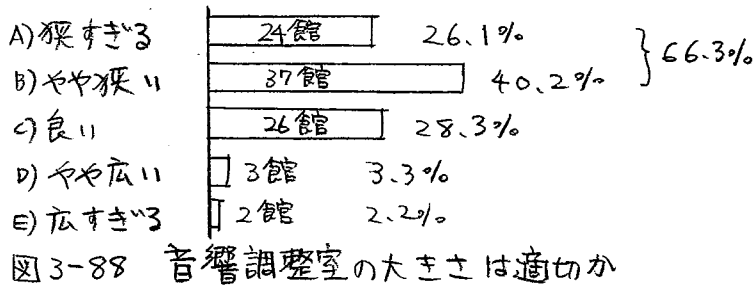 A)狭すぎる 24館 26.1%
B)やや狭い 37館 40.2% 66.3%
C)良い 26館 28.3%
D)やや広い 3館 3.3%
E)広すぎる 2館 2.2%
図3-88 音響調整室の大きさは適切か